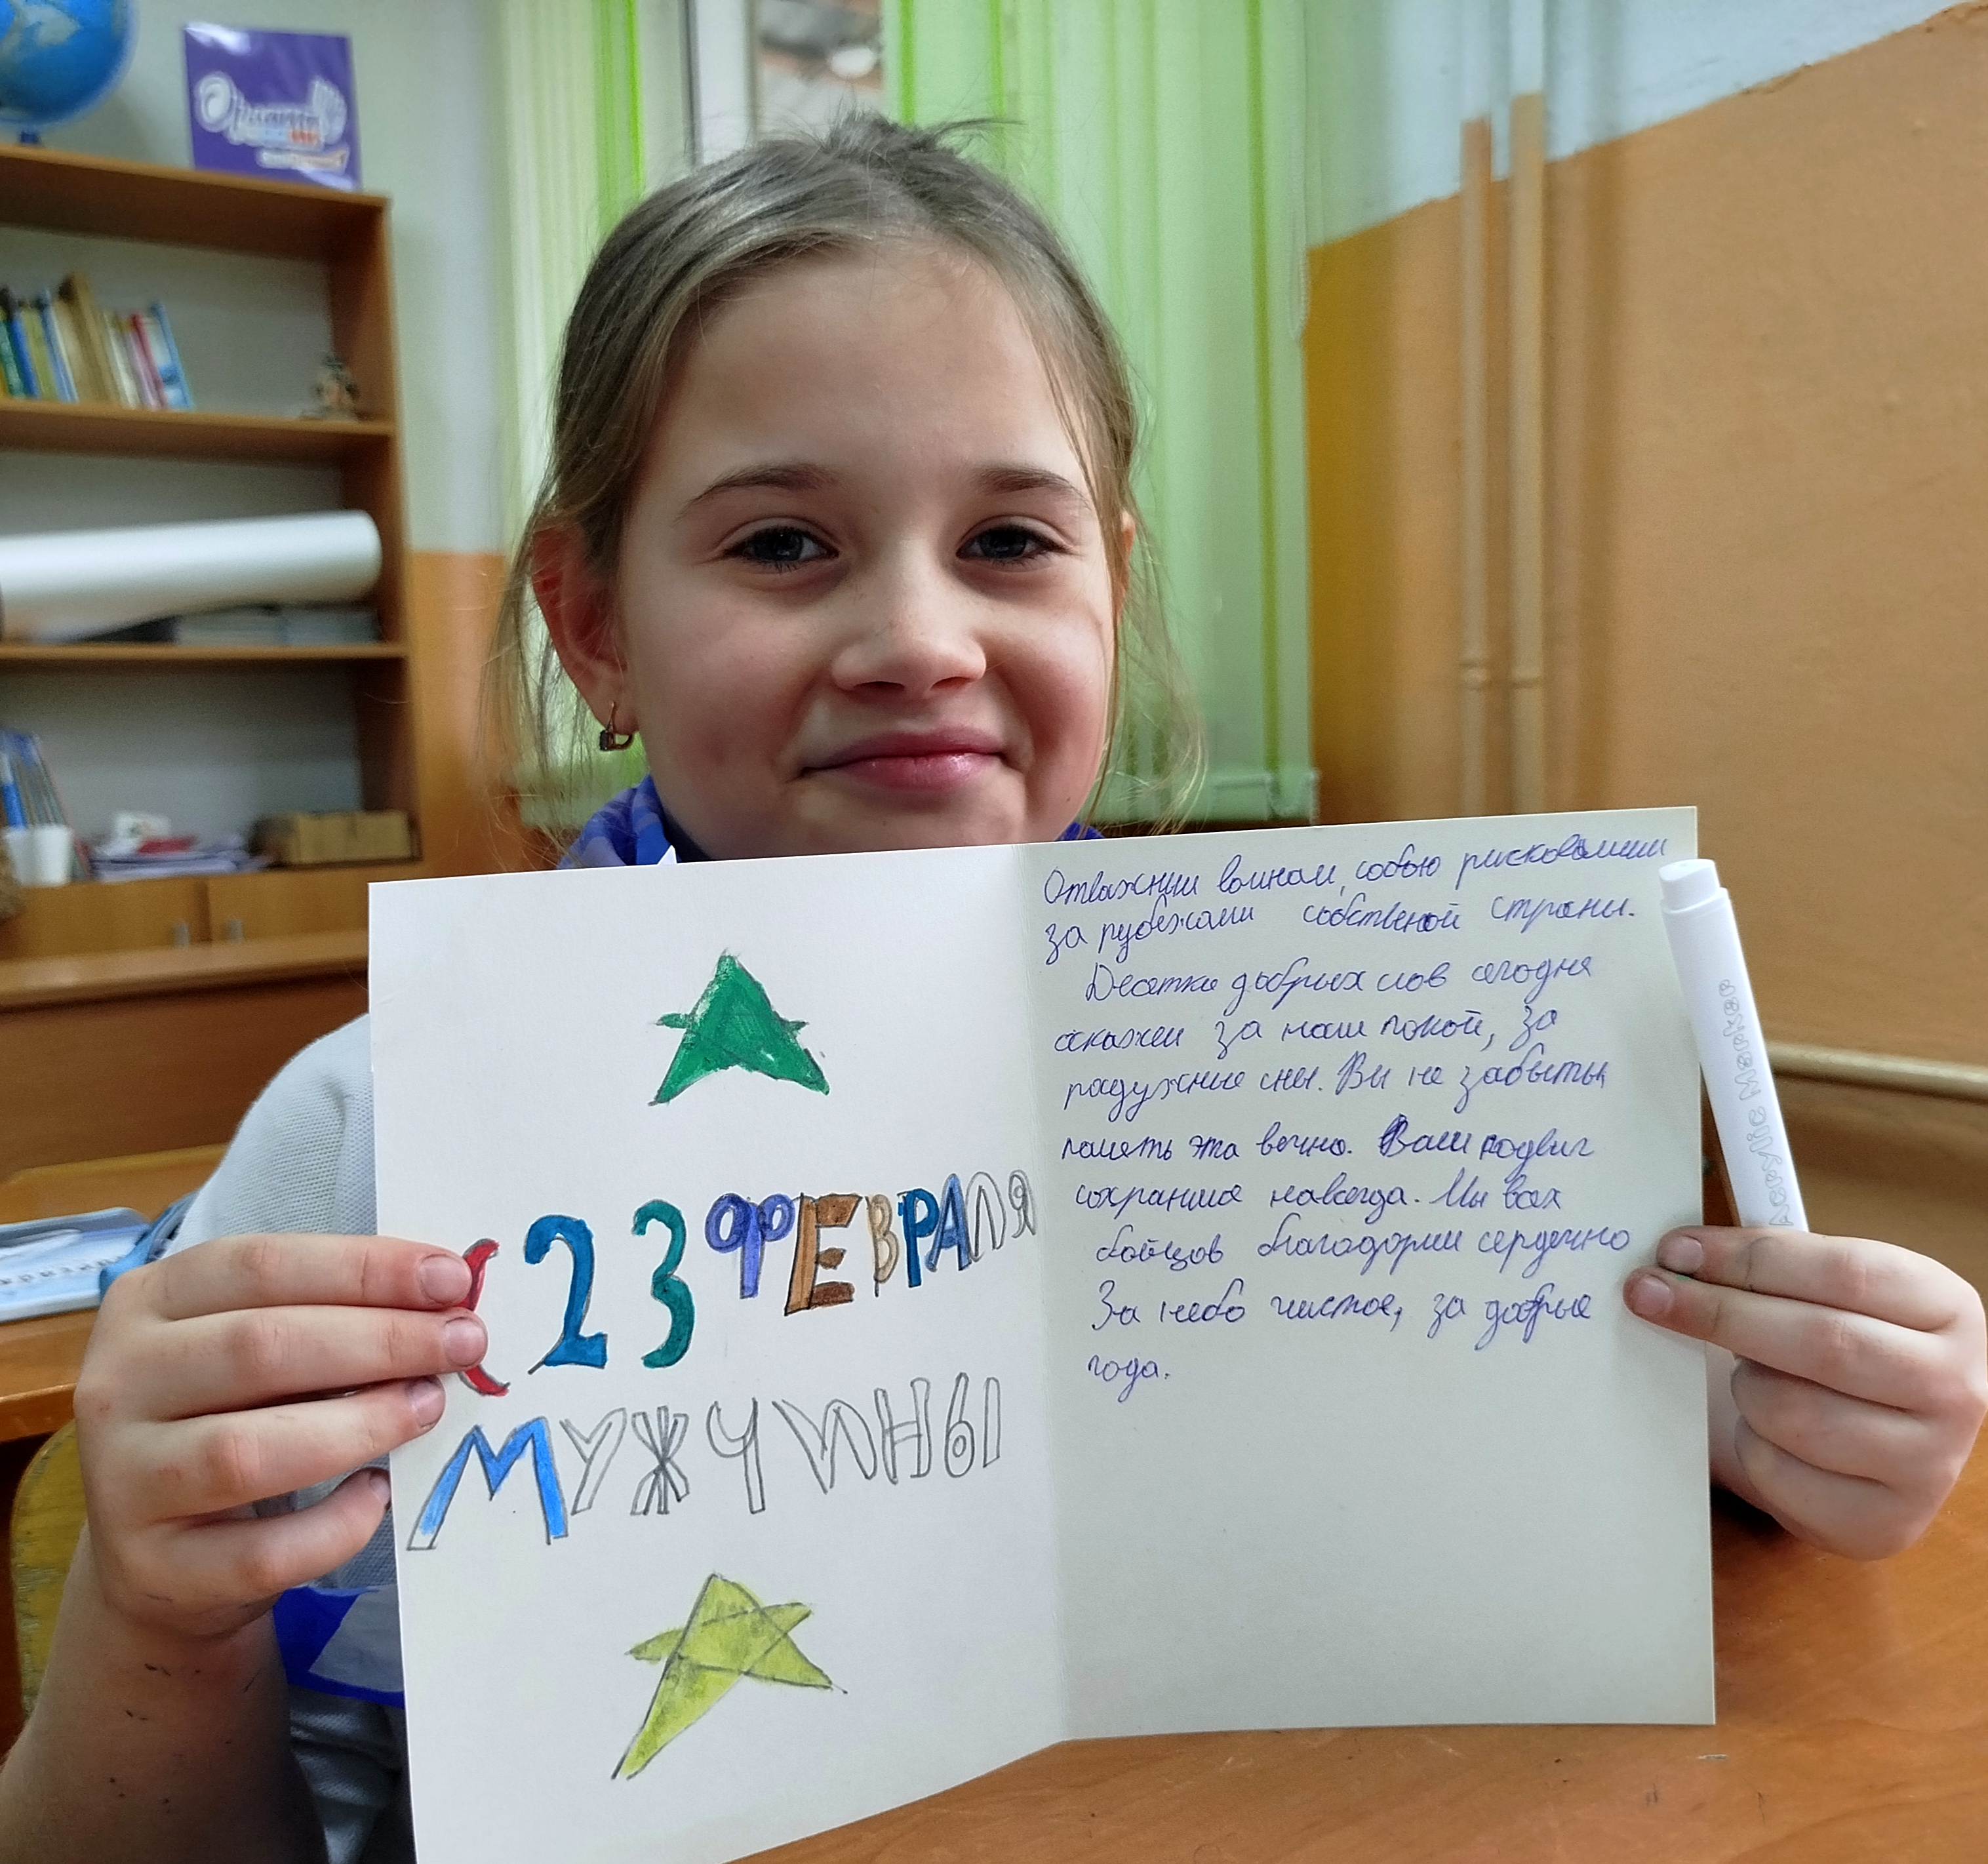 Орлята
С 23 ФЕВРАЛЯ
МУЖЧИНЫ
Отважным воинам, собою рисковавшим
за рубежами собственной страны.
Десятки добрых слов сегодня
скажем за наш покой, за
радужные сны. Вы не забыты,
память эта вечно. Ваш подвиг
сохраним навсегда. Мы всех
бойцов благодарим сердечно
За небо чистое, за добрые
года.
Acrylic Marker